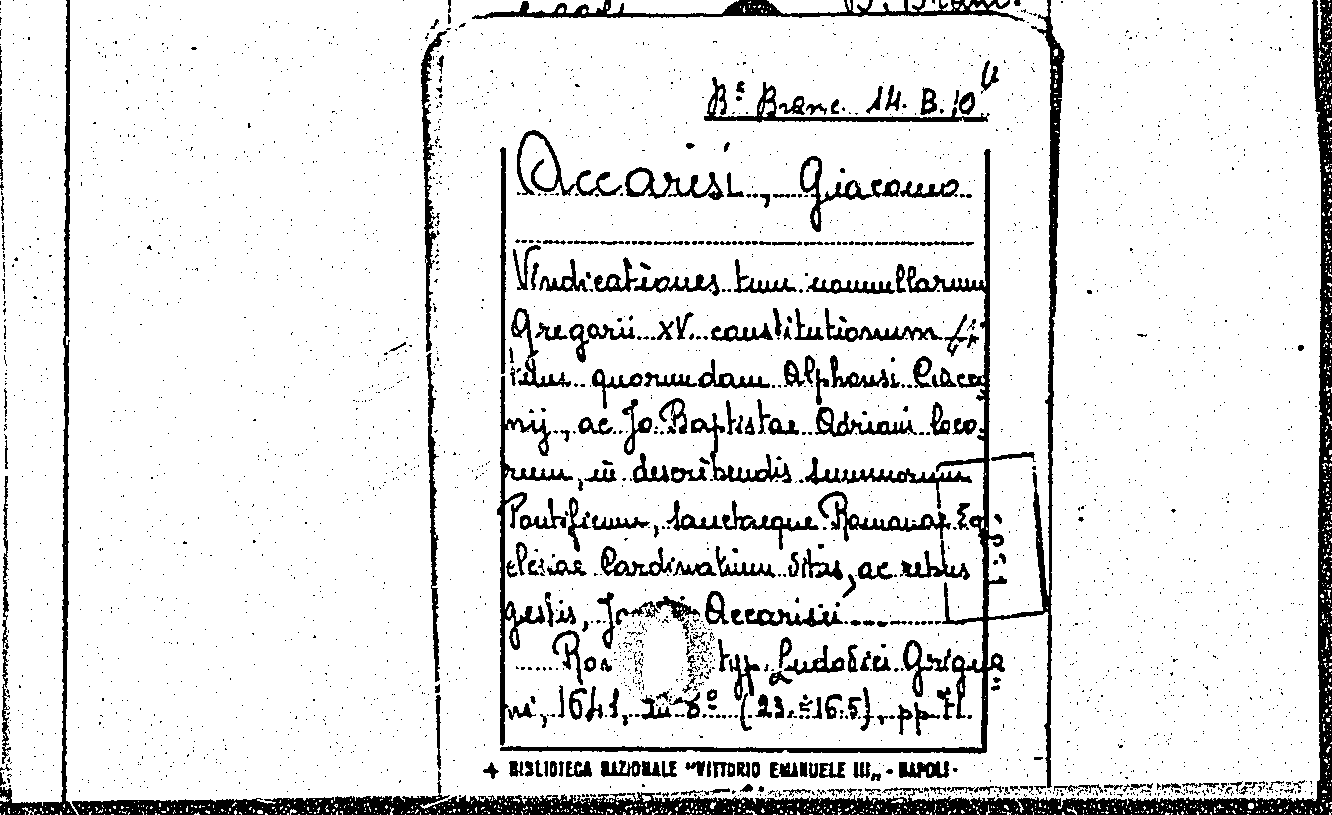 B. Branc.
Bª Branc. 14. B. 10
Accarisi, Giacomo
Vindicationes tum nonnullarum
Gregorii XV. constitutionum
tum quorundam Alphonsi Ciaco
nij, ac Jo. Baptistae Adriani loco-
rum, in describendis Summorum
Pontificum, Sanctaeque Romanae Ec-
clesiae Cardinalium Vitis, ac rebus
gestis, Accarisii
typ. Ludovici Grigna
ni, 1641, in 8º (23.×16.5), pp.
BIBLIOTECA NAZIONALE "VITTORIO EMANUELE III„ - NAPOLI -